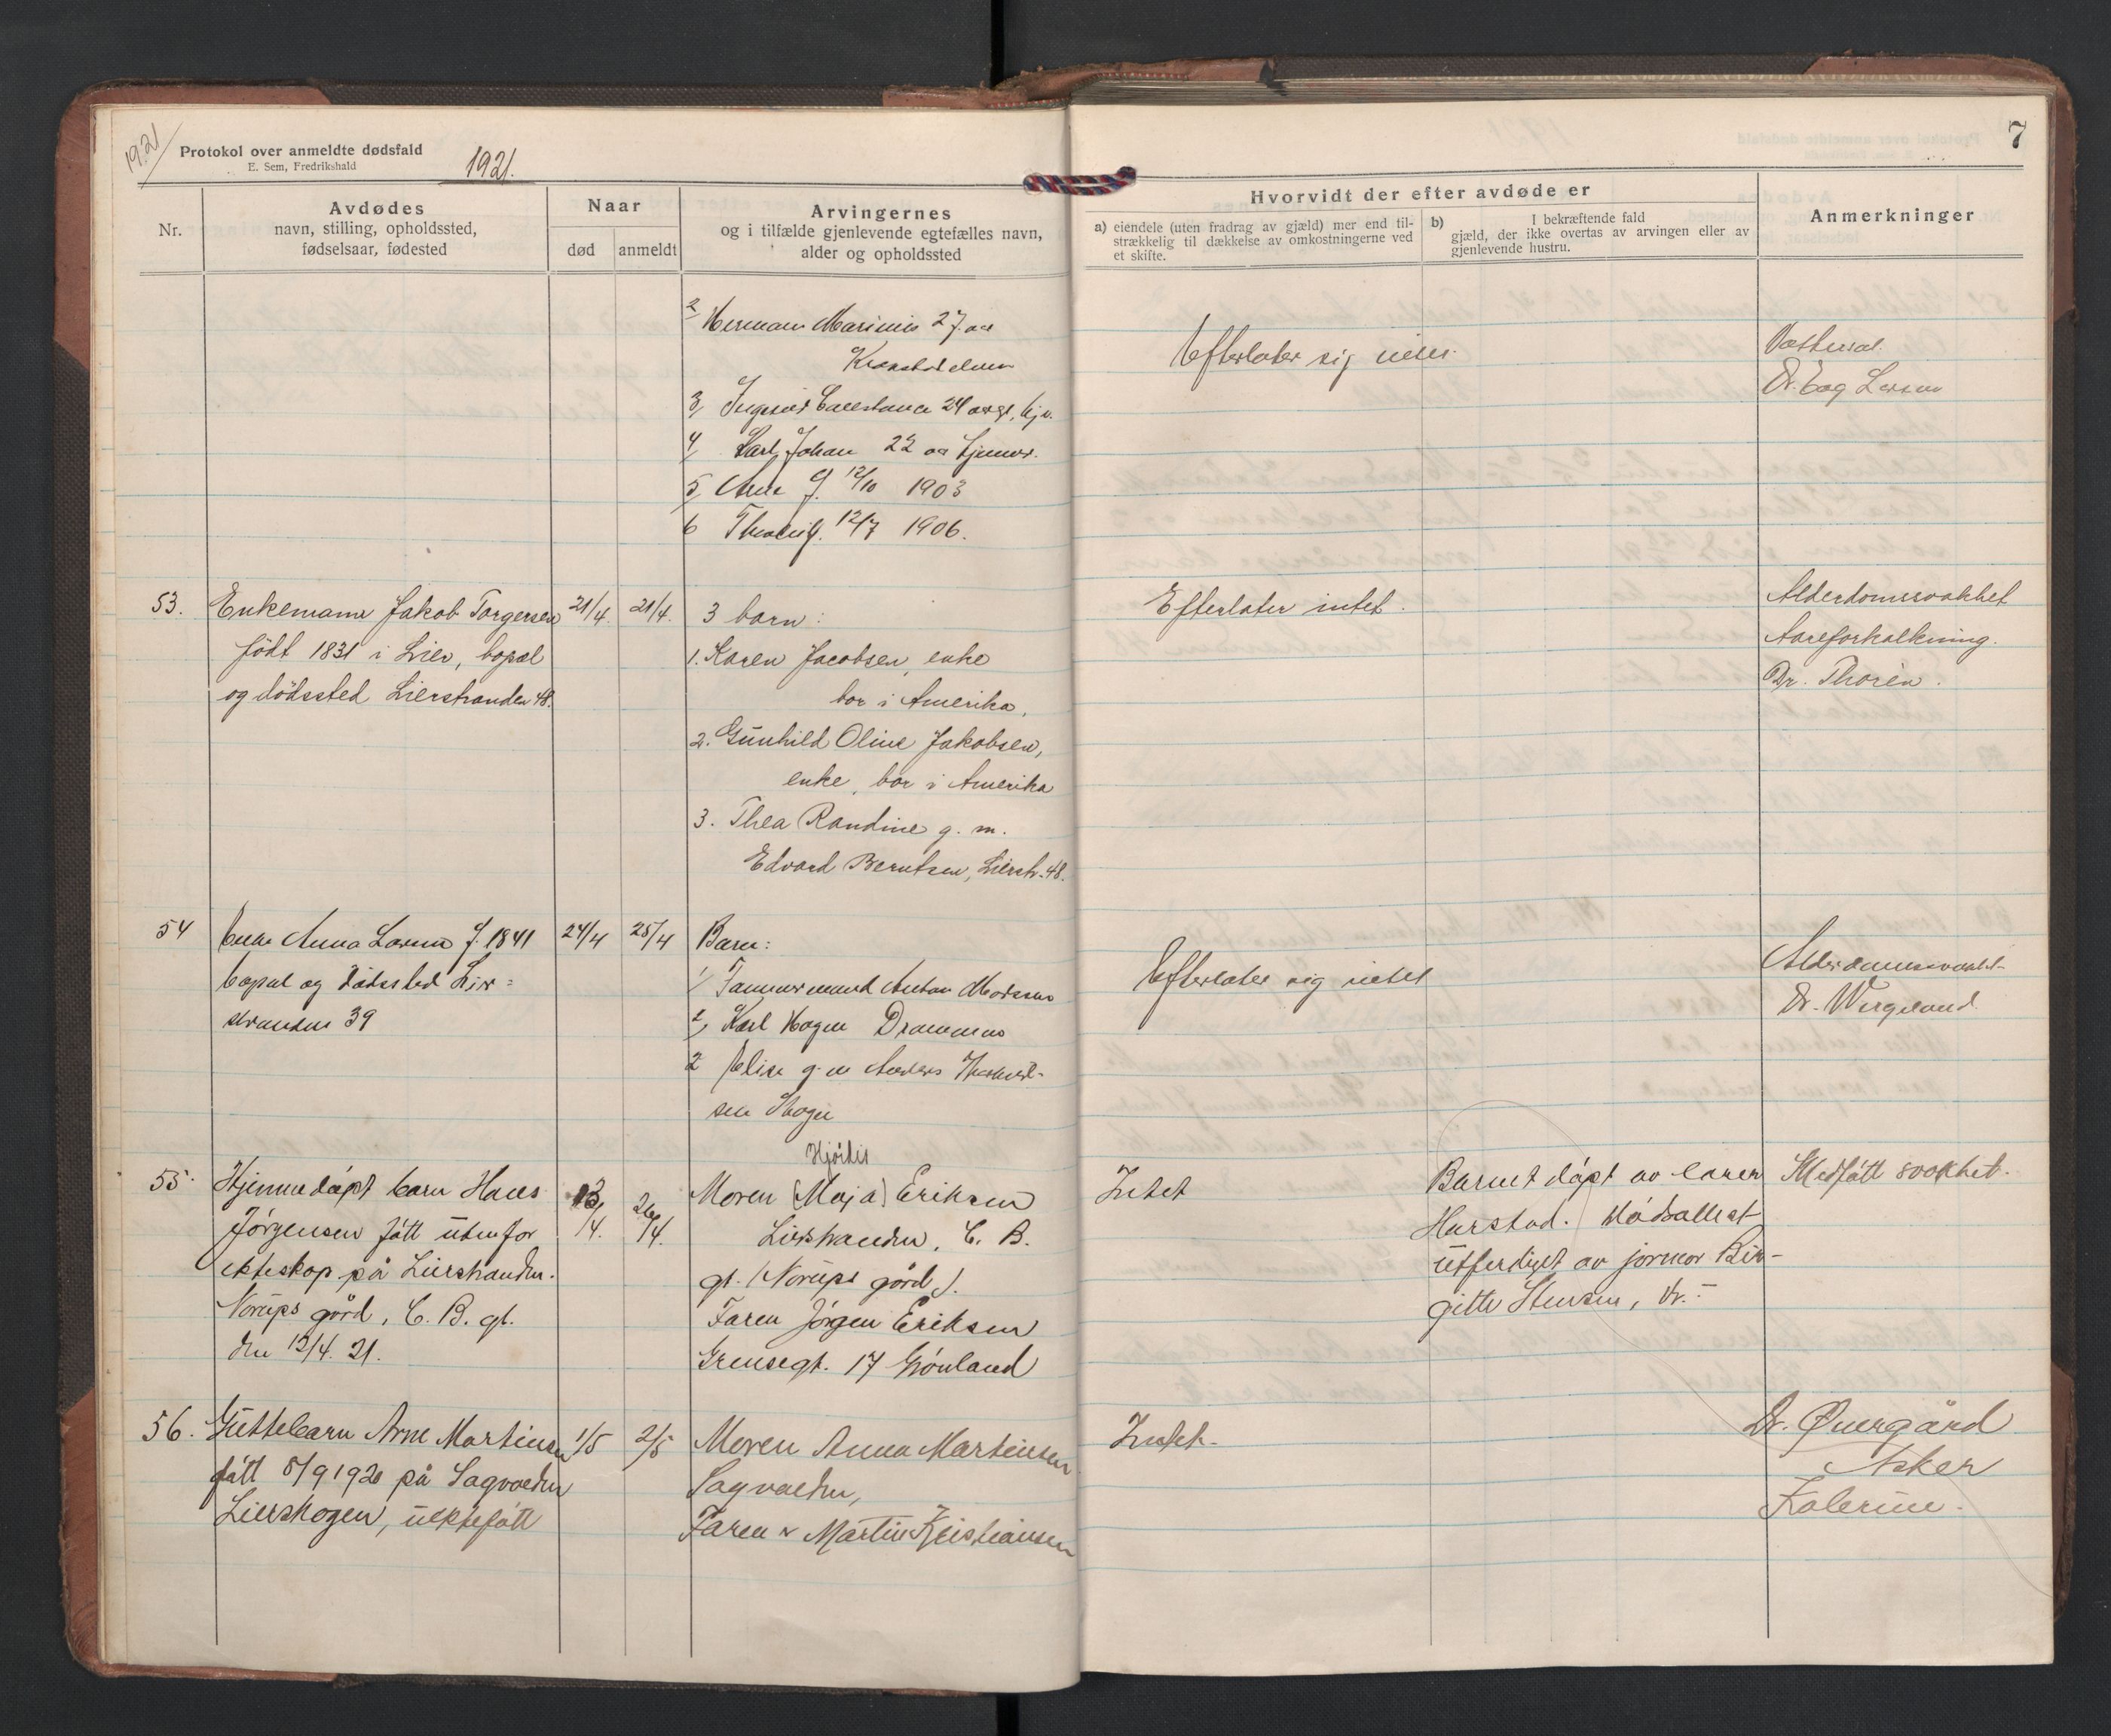 1921
Protokol over anmeldte dødsfald
E. Sem, Fredrikshald
1921.
Nr.
Avdødes
navn, stilling, opholdssted,
fødselsaar, fødested
Naar
død
anmeldt
Arvingernes
og i tilfælde gjenlevende egtefælles navn,
alder og opholdssted
7
Hvorvidt der efter avdøde er
a) eiendele (uten fradrag av gjæld) mer end til-
strækkelig til dækkelse av omkostningerne ved
et skifte.
b) I bekræftende fald
gjæld, der ikke overtas av arvingen eller av
gjenlevende hustru.
Anmerkninger
2 Herman Marinius 27 aa
3/ 24
4/ Karl Johan 22 aa
5/ f. 12/10 1903
6 f. 12/7 1906.
Efterlater sig
Dr.
53.
Enkemann Jakob Torgersen
født 1831 i Lier, bopæl
og dödssted Lierstranden 48.
21/4.
21/4.
3 barn:
1. Karen Jacobsen, enke
bor i Amerika,
2. Gunhild Oline Jakobsen,
enke, bor i Amerika
3. Thea Randine g. m.
Edvard Berntsen, Lierstr. 48.
Efterlater intet.
Alderdomssvakhet
Aareforkalkning.
Dr. Thorén.
54
Enke Anna Larsen f. 1841
bopæl og dødssted Lier=
stranden 39
24/4
25/4
Barn:
1/ Tømmermand Anton
2/ Karl Hagen Drammen
2 Elise g. m Anders
sen
Efterlater sig intet
Dr. Wergeland
55.
Hjemmedøpt barn Hans
Jörgensen fött utenfor
ekteskap på Lierstranden.
Norups gård, C. B. gt.
den 12/4. 21.
13/4.
26/4.
Hjördis
Moren (Maja) Eriksen
Lierstranden, C. B.
gt. (Norups gård).
Faren Jörgen Eriksen
Grensegt. 17 Grönland
Intet
Barnet döpt av lærer
Harstad. Dödsattest
utferdiget av jormor Bir-
gitte Stensen, Dr.
Medfött svakhet.
56.
Guttebarn Arne Martinsen
fött 5/9 1920 på Sagvolden
Lierskogen, uektefött
1/5
2/5
Moren Anna Martinsen
Sagvolden,
Faren Martin Kristiansen
Intet.
Dr. Øvergård
Asker
Kolerine.